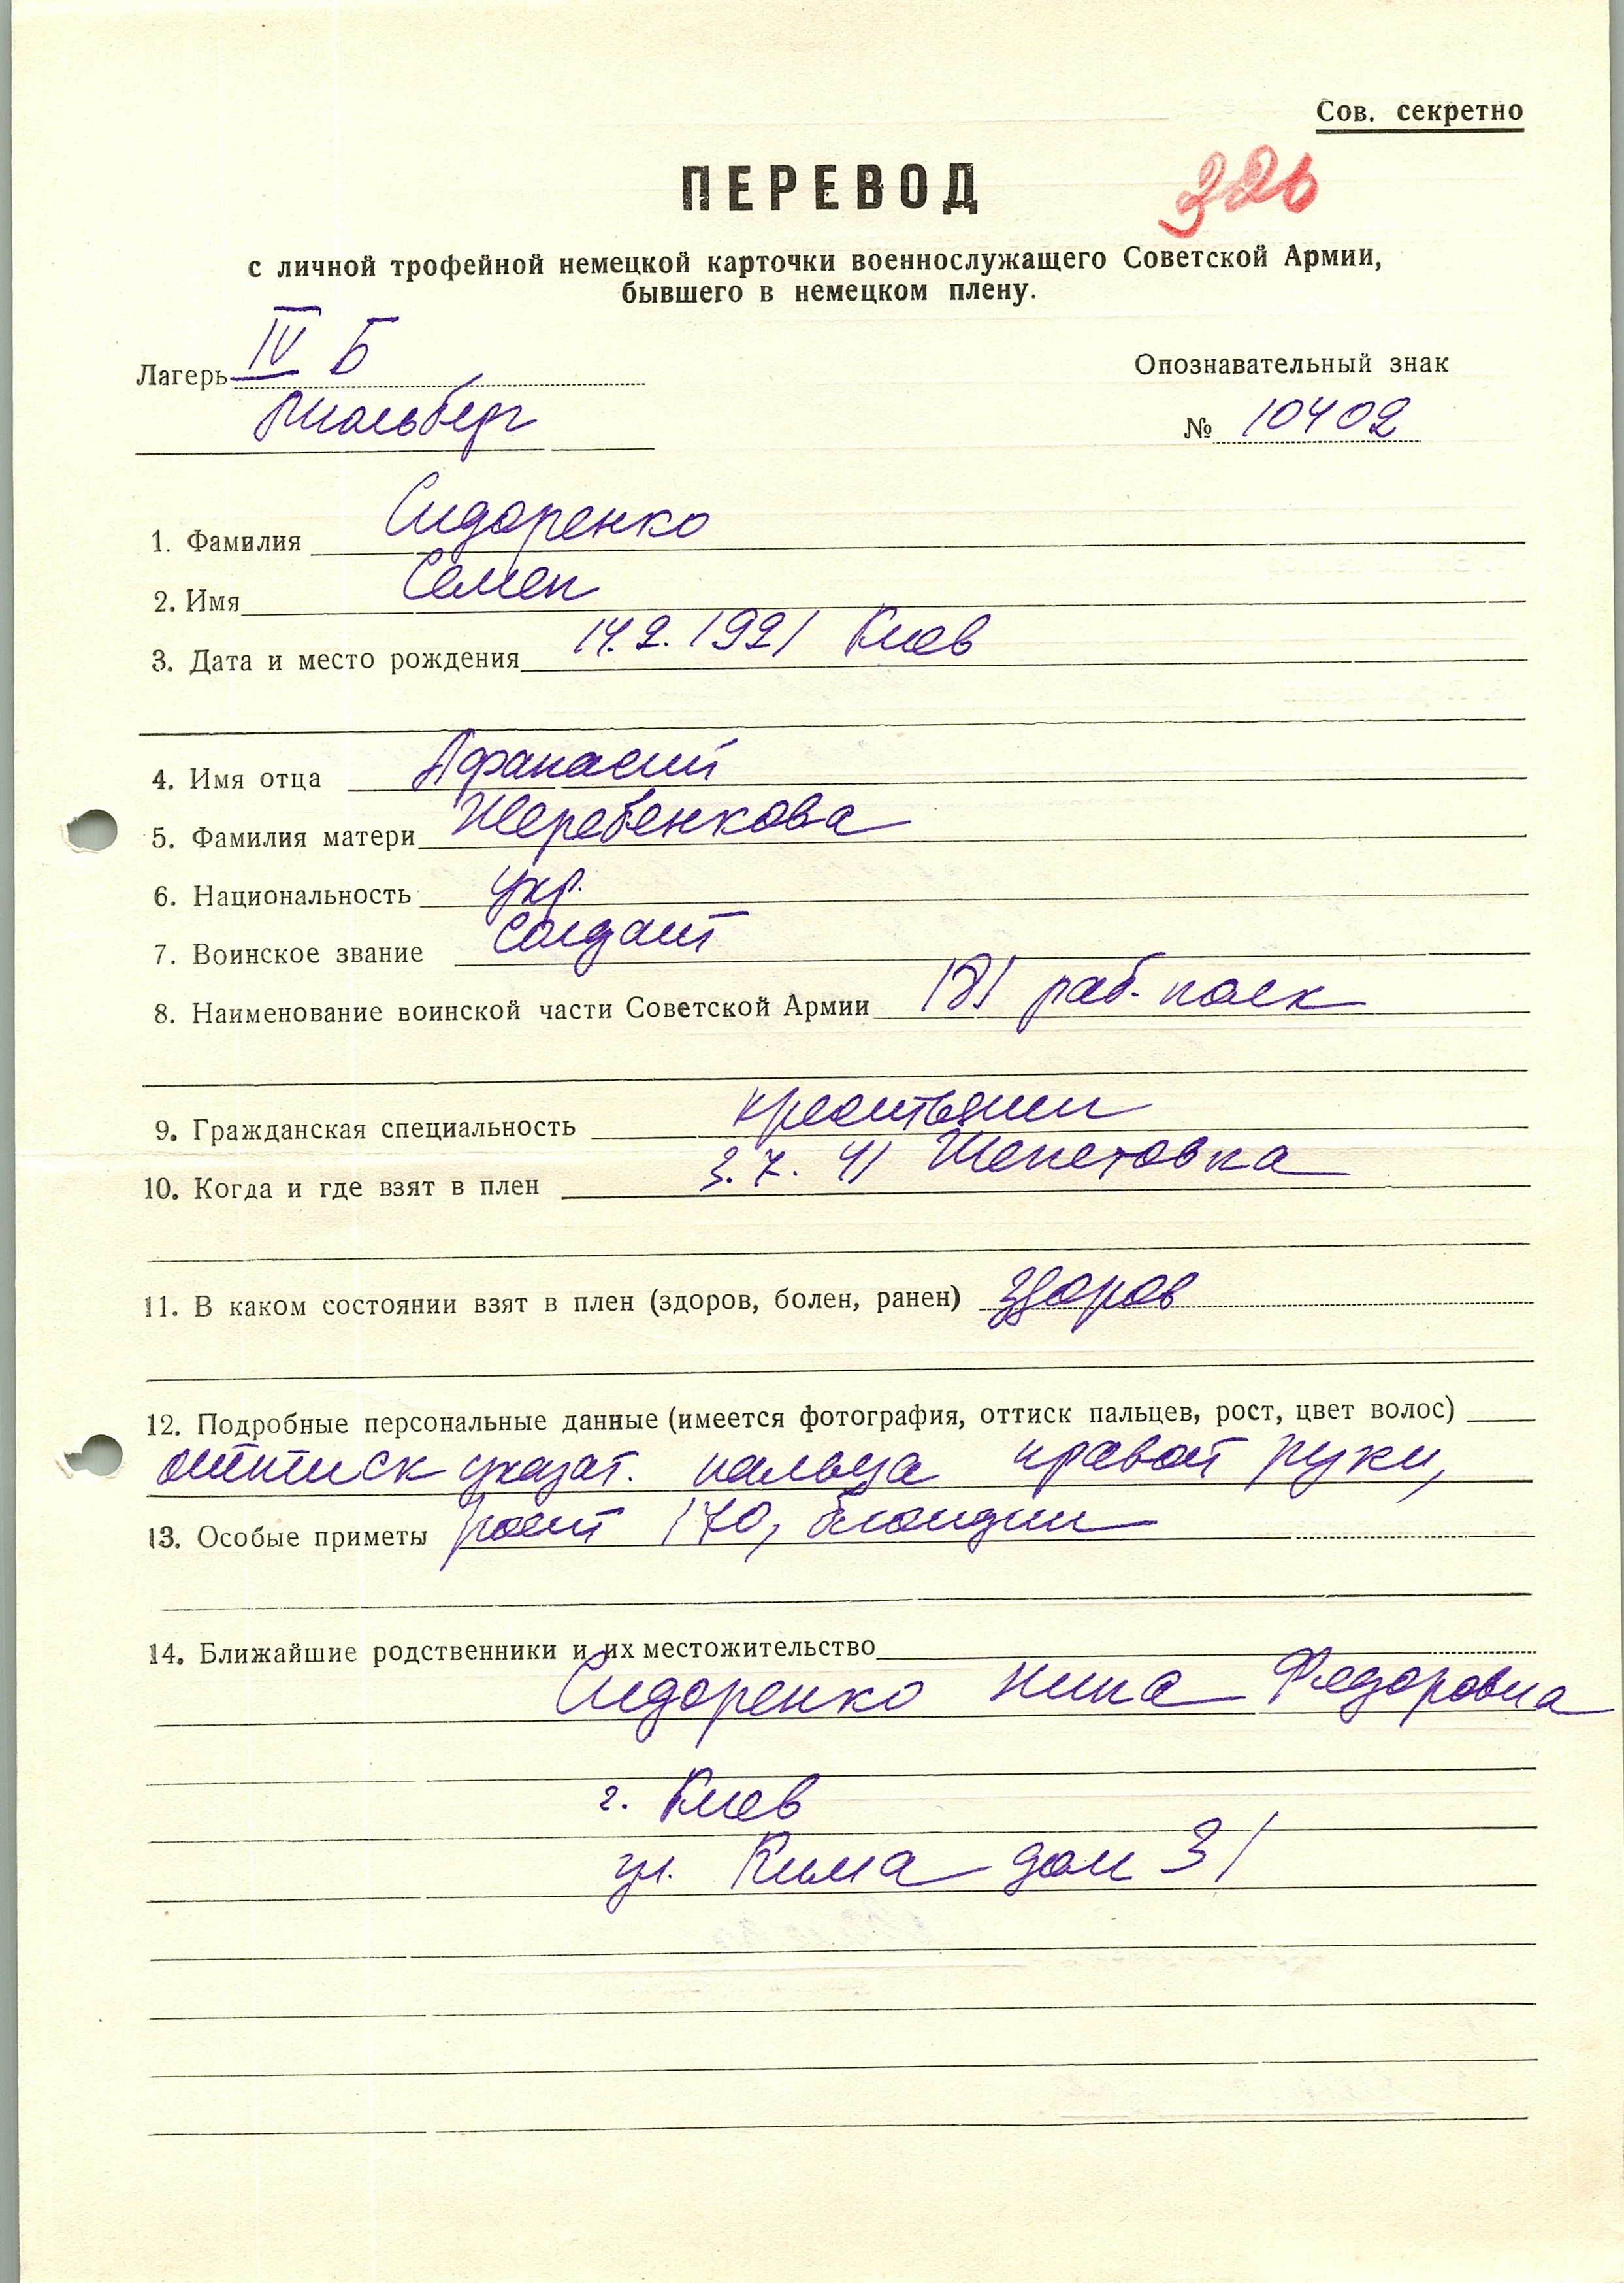 Сов. секретно
ПЕРЕВОД
326
с личной трофейной немецкой карточки военнослужащего Советской Армии,
бывшего в немецком плену.
Лагерь IV Б
Опознавательный знак
Мюльберг
№ 10402
1. Фамилия Сидоренко
2. Имя Семен
3. Дата и место рождения 14.2.1921 Киев
4. Имя отца Афанасий
5. Фамилия матери Жеребенкова
6. Национальность укр.
7. Воинское звание солдат
8. Наименование воинской части Советской Армии 181 раб. полк
9. Гражданская специальность крестьянин
10. Когда и где взят в плен 3.7.41 Шепетовка
11. В каком состоянии взят в плен (здоров, болен, ранен) здоров
12. Подробные персональные данные (имеется фотография, оттиск пальцев, рост, цвет волос)
оттиск указат. пальца правой руки,
13. Особые приметы рост 170, блондин
14. Ближайшие родственники и их местожительство
Сидоренко Нина Федоровна
г. Киев
ул. Кима дом 31